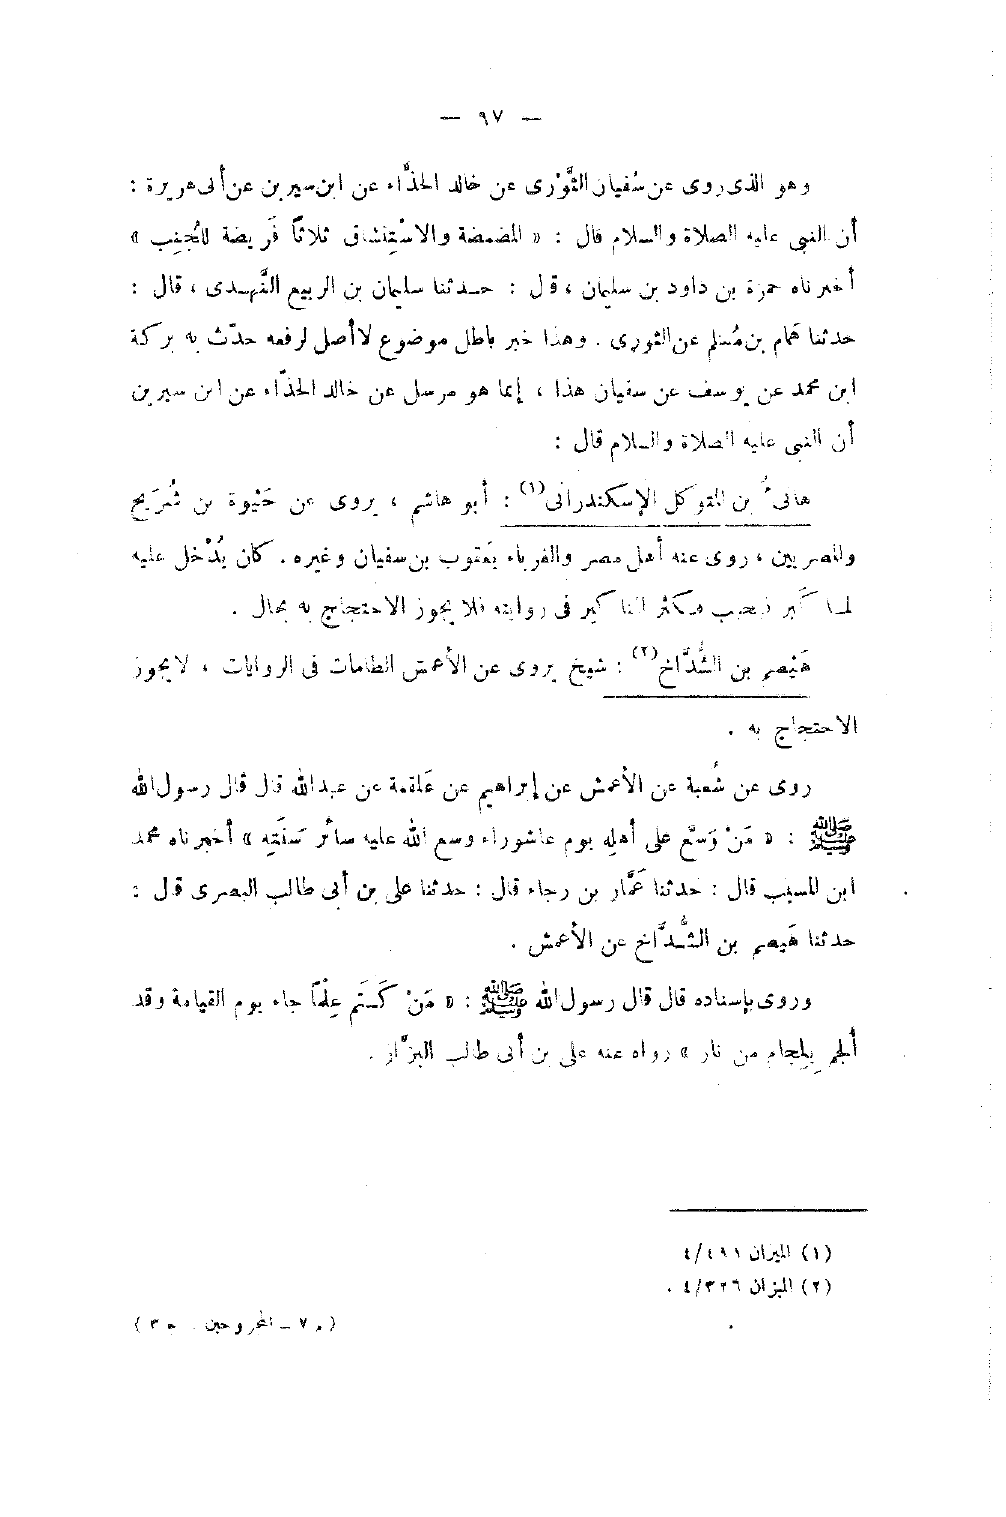 — ٩٧ —
وهو الذى روى عن سُفيان الثَّوْرى عن خالد الحذَّاء عن ابن سيرين عن أبى هريرة :
أن النبى عليه الصلاة والسلام قال : « المضمضة والاسْتِنشاق ثلاثاً فَريضة للجُنِب »
أخبرناه حمزة بن داود بن سليمان ، قال : حـدثنا سليمان بن الربيع النَّهـدى ، قال :
حدثنا هَمام بن مُسلم عن الثورى . وهذا خبر باطل موضوع لا أصل لرفعه حدّث به بركة
ابن محمد عن يوسف عن سفيان هذا ، إنما هو مرسل عن خالد الحذّاء عن ابن سيرين
أن النبى عليه الصلاة والسلام قال :
هانىءُ بن المتوكل الإسكندرانى(١) : أبو هاشم ، يروى عن حَيْوة بن شُرَيح
والمصريين ، روى عنه أهل مصر والغرباء يَعقوب بن سفيان وغيره . كان يُدْخل عليه
لمـا كَبر فيجيب فيكثر المناكير فى روايته فلا يجوز الاحتجاج به بحال .
هَيْصم بن الشُّدَّاخ(٢) : شيخ يروى عن الأعمش الطامات فى الروايات ، لا يجوز
الاحتجاج به .
روى عن شُعبة عن الأعمش عن إبراهيم عن عَلقمة عن عبد الله قال قال رسول الله
ﷺ : « مَنْ وَسَّع على أهلِه يوم عاشوراء وسع الله عليه سائر سَنَتِه » أخبرناه محمد
ابن المسيب قال : حدثنا عَمَّار بن رجاء قال : حدثنا على بن أبى طالب البصرى قال :
حدثنا هَيصم بن الشُّـدَّاخ عن الأعمش .
وروى بإسناده قال قال رسول الله ﷺ : « مَنْ كَتَم عِلْماً جاء يوم القيامة وقد
ألجم بِلجام من نار » رواه عنه على بن أبى طالب البزَّاز .
(١) الميزان ٤/٢٩١
(٢) الميزان ٤/٣٢٦ .
( م ٧ ـ المجروحين ـ ج ٣ )